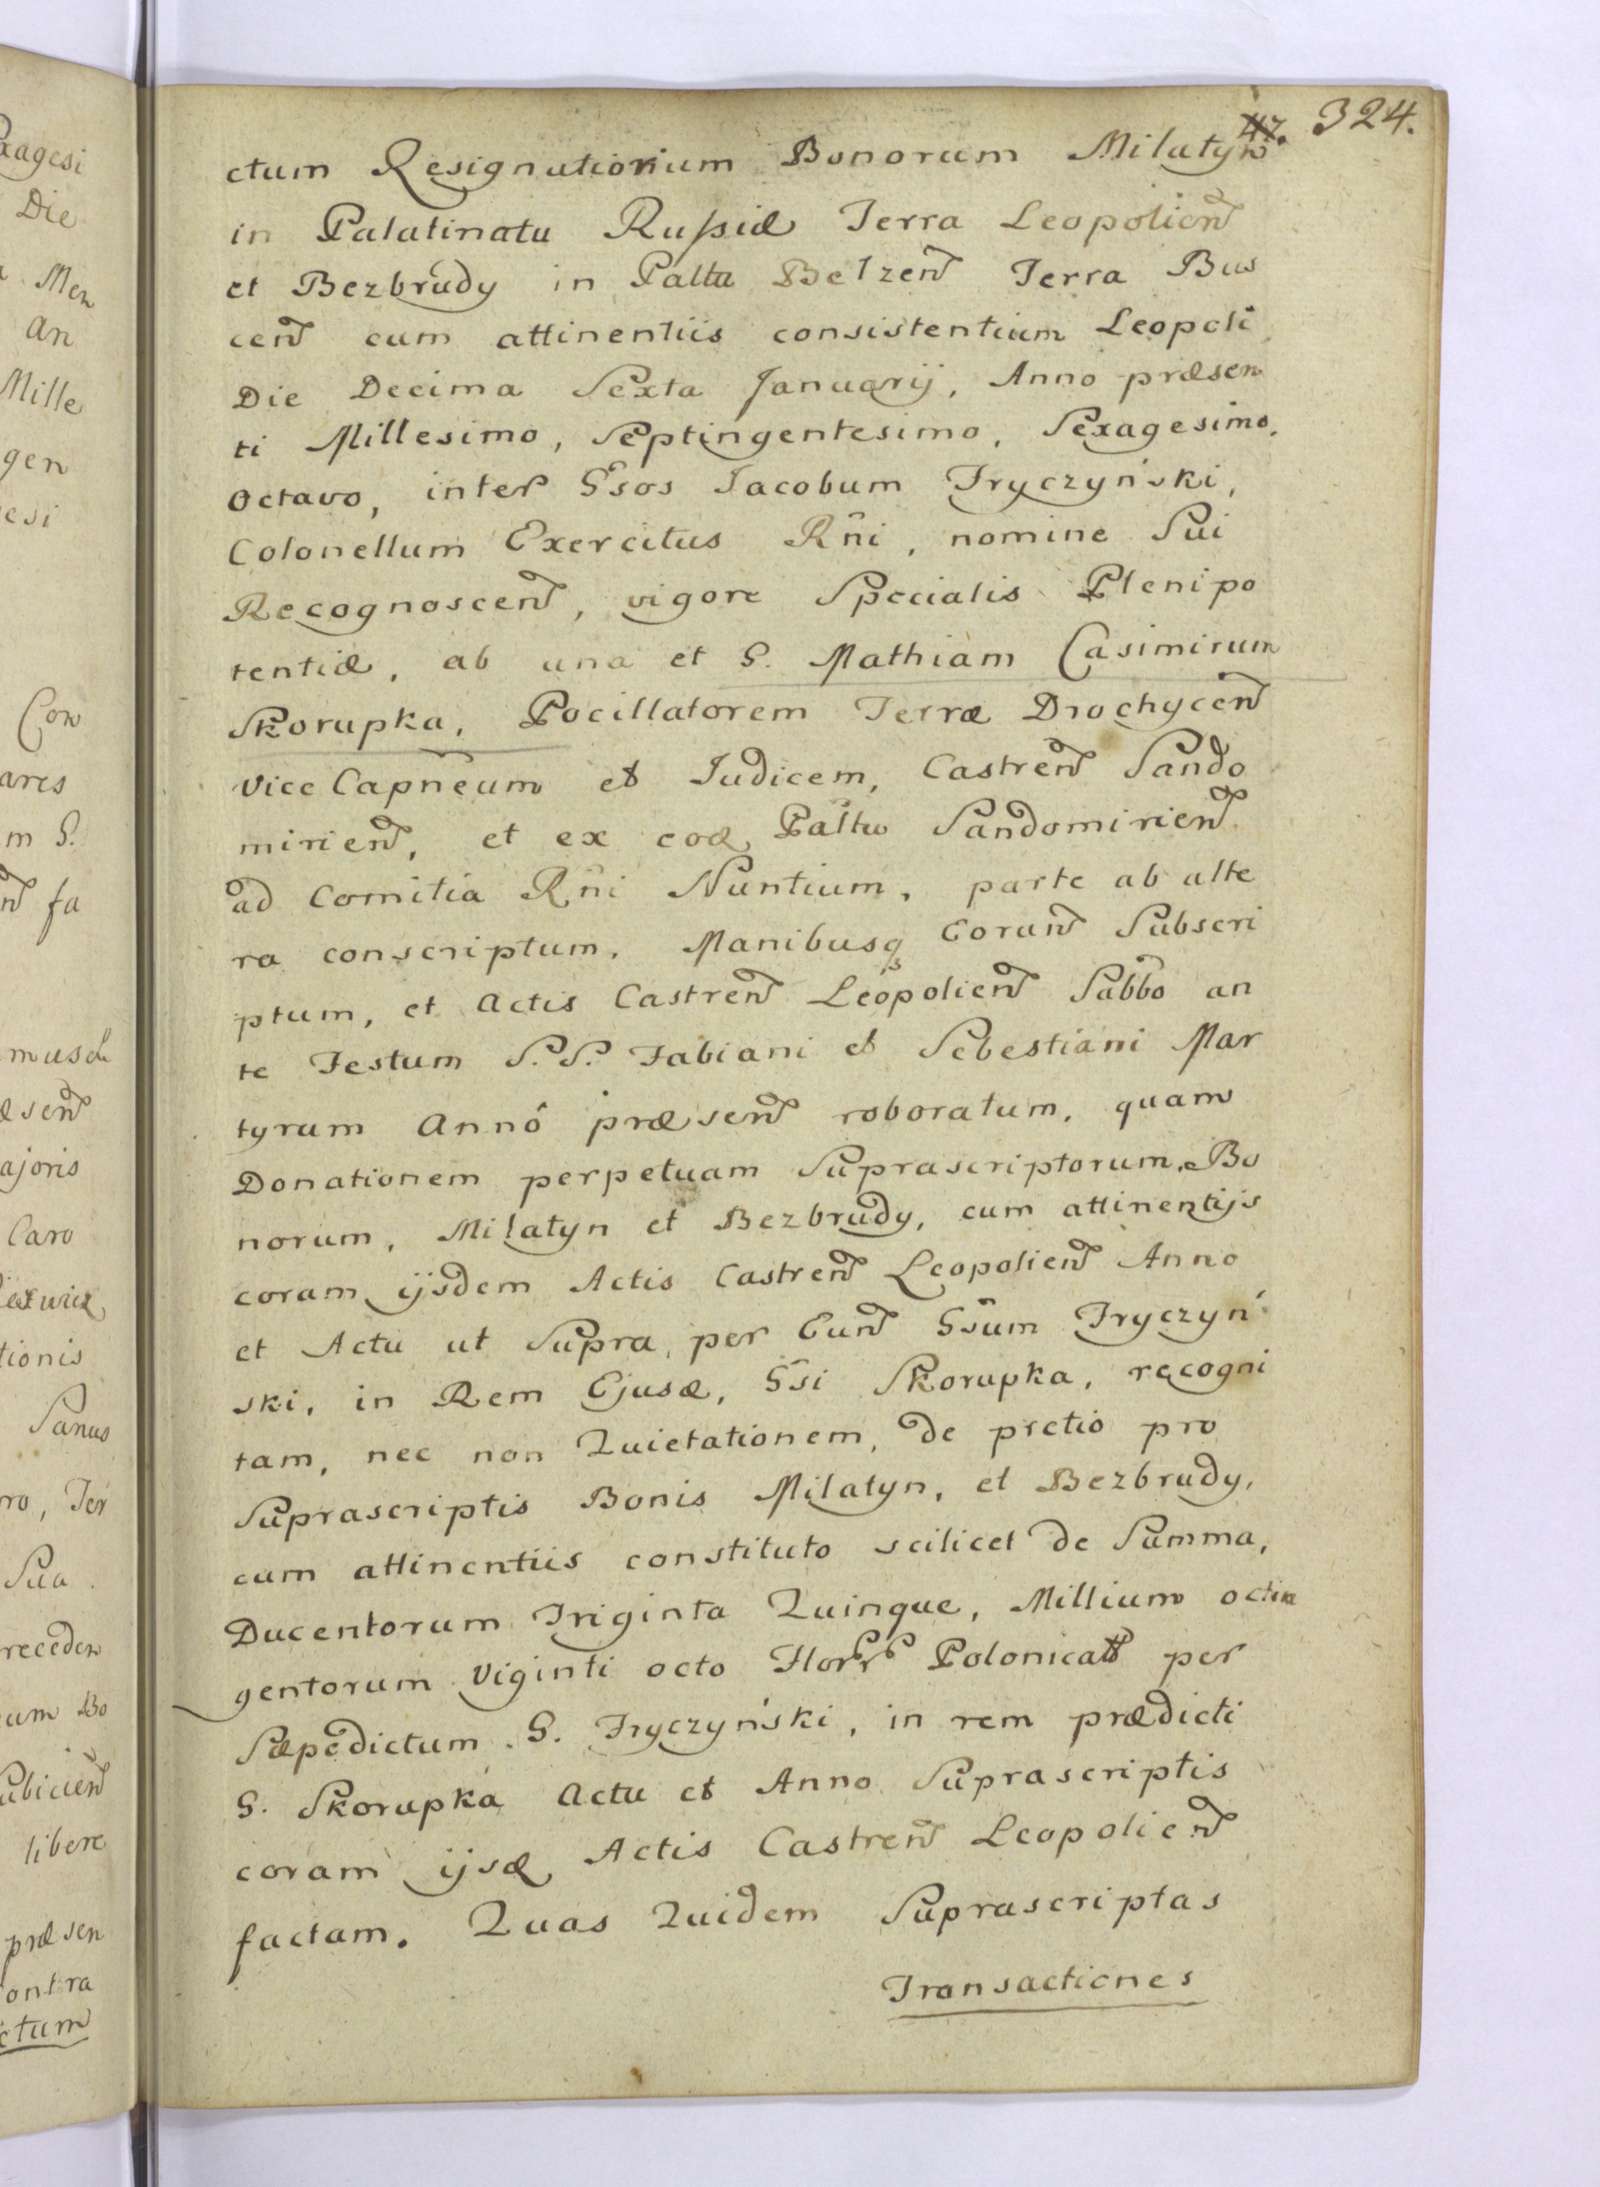 47. 324.
ctum Resignationium Bonorum Milatyn
in Palatinatu Russiæ Terra Leopolien
et Bezbrudy in Palttu Belzen Terra Bus
cen cum attinentiis consistentium Leopoli
Die Decima Sexta Januarij, Anno præsen
ti Millesimo, Septingentesimo, Sexagesimo,
Octavo, inter Gsos Jacobum Fryczyński,
Colonellum Exercitus Rñi, nomine Sui
Recognoscen, vigore Specialis Plenipo
tentiæ, ab una et G. Mathiam Casimirum
Skorupka, Pocillatorem Terræ Drochycen
Vice Capneum et Judicem, Castren Sando
mirien, et ex eoq Palttu Sandomirien
ad Comitia Rñi Nuntium, parte ab alte
ra conscriptum, Manibusq Eorum Subscri
ptum, et Actis Castren Leopolien Sabbo an
te Festum S. S. Fabiani et Sebestiani Mar
tyrum Anno præsen roboratum, quam
Donationem perpetuam Suprascriptorum, Bo
norum, Milatyn et Bezbrudy, cum attinentijs
coram ijsdem Actis Castren Leopolien Anno
et Actu ut Supra, per Eun Gsum Fryczyń
ski, in Rem Ejusd, Gsi Skorupka, recogni
tam, nec non Quietationem, de pretio pro
Suprascriptis Bonis Milatyn, et Bezbrudy,
cum attinentiis constituto scilicet de Summa,
Ducentorum Triginta Quinque, Millium octin
gentorum Viginti octo Florr Polonical per
Sæpedictum G. Fryczyński, in rem prædicti
G. Skorupka Actu et Anno Suprascriptis
coram ijsd Actis Castren Leopolien
factam. Quas Quidem Suprascriptas
Transactiones